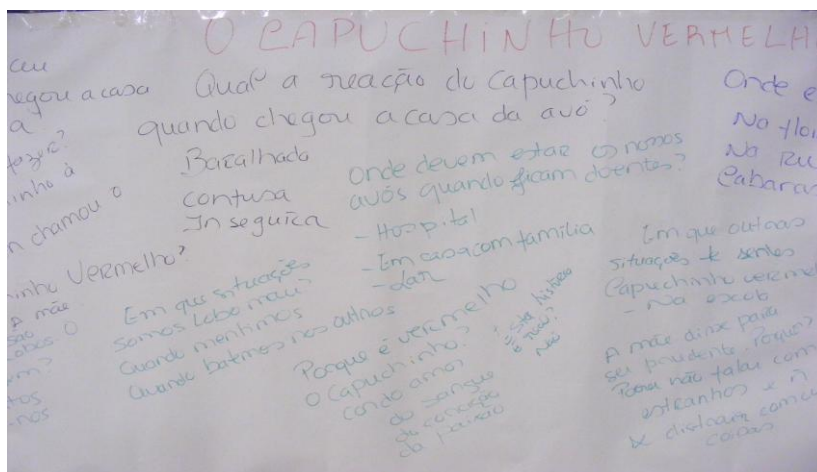 O CAPUCHINHO VERMELH
ceu
egou a casa
a
fazer?
inho à
n chamou o
inho Vermelho?
A mãe
são
obos O
m?
tos
-nos
Qual a reacção do Capuchinho
quando chegou a casa da avó?
Baralhado
Confusa
Insegura
Onde devem estar os nossos
avós quando ficam doentes?
- Hospital
- Em casa com família
- Lar
Em que situações
somos Lobo mau?
Quando mentimos
Quando batemos nos outros
Porque é vermelho
O Capuchinho?
cor do amor
do sangue
do coração
da paixão
Esta história
é real?
Não
Onde e
Na flor
Na Ru
Cabanas
Em que outras
situações te sentes
Capuchinho verme
- Na escol
A mãe disse para
ser prudente. Porquê?
Para não falar com
estranhos e n
se distrair com
coisas